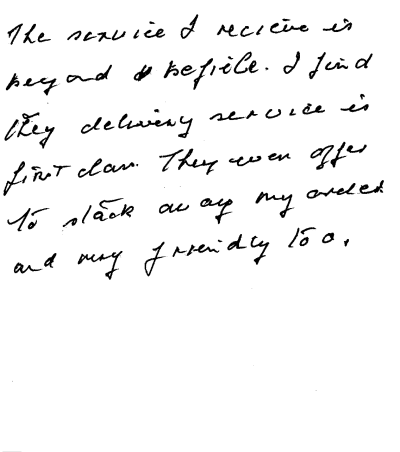 The service I recieve is
beyond belief. I find
they delivery service is
first class. They even offer
to stack away my order
and very friendly too.